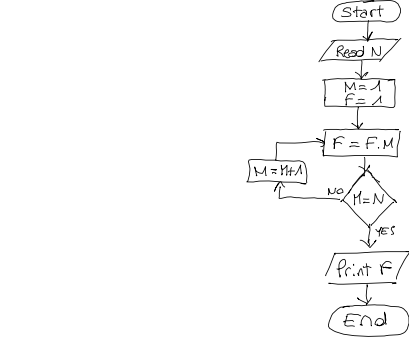 Start
Read N
M=1
F=1
F=F.M
M=M+1
NO
M=N
YES
Print F
End